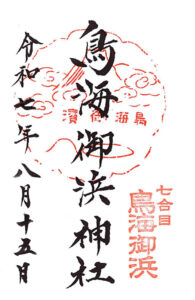 鳥海御浜神社
令和七年八月十五日
七合目
鳥海御浜